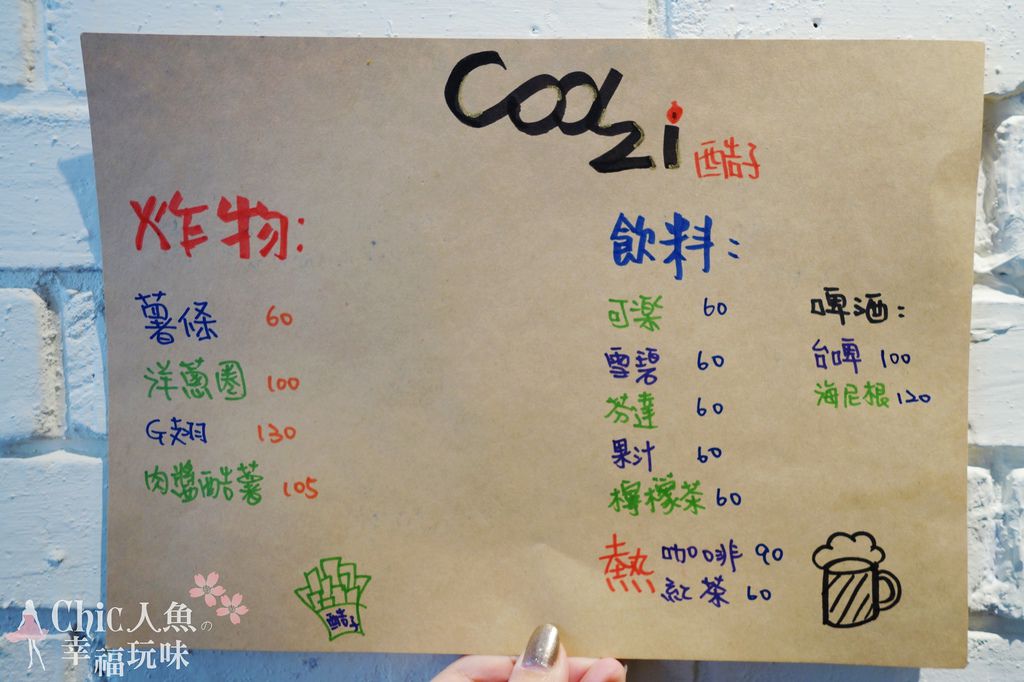 Coolzi 酷子
炸物:
薯條 60
洋蔥圈 100
G翅 130
肉醬酷薯 105
飲料:
可樂 60
雪碧 60
芬達 60
果汁 60
檸檬茶 60
熱 咖啡 90
紅茶 60
啤酒:
台啤 100
海尼根 120
酷子
Chic人魚の
幸福玩味